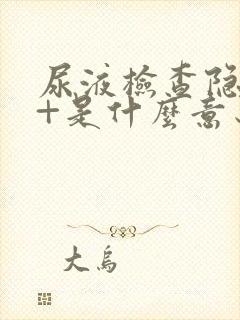 尿液檢查隐
+是什麼意
大鳥